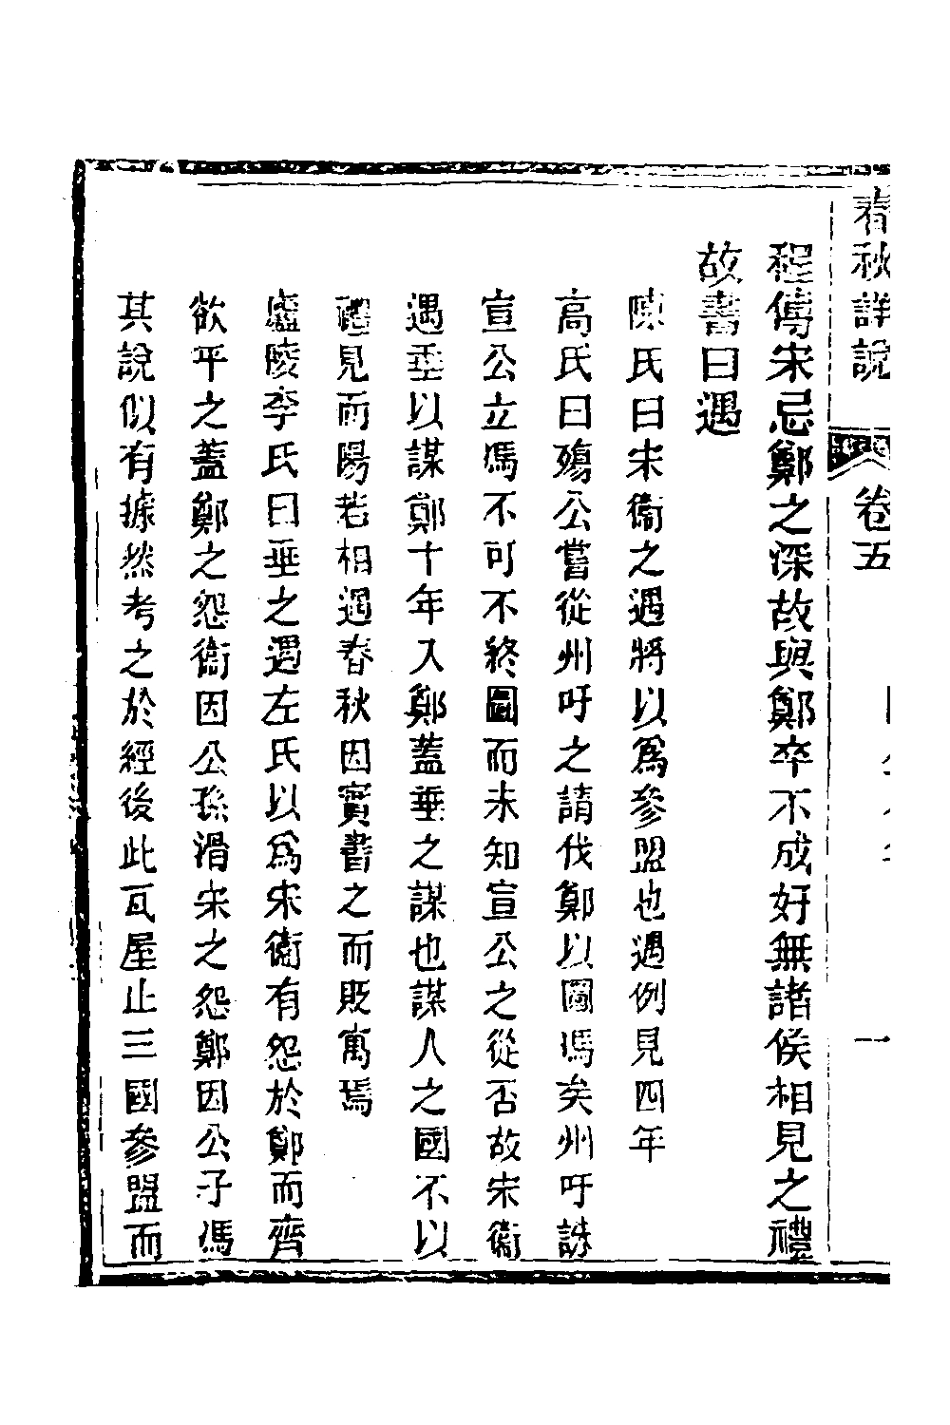 春秋詳說 卷五 一
程傳宋忌鄭之深故與鄭卒不成好無諸侯相見之禮
故書曰遇
陳氏曰宋衞之遇將以爲參盟也遇例見四年
高氏曰殤公嘗從州吁之請伐鄭以圖馮矣州吁誅
宣公立馮不可不終圖而未知宣公之從否故宋衞
遇垂以謀鄭十年入鄭蓋垂之謀也謀人之國不以
禮見而陽若相遇春秋因實書之而貶寓焉
廬陵李氏曰垂之遇左氏以爲宋衞有怨於鄭而齊
欲平之蓋鄭之怨衞因公孫滑宋之怨鄭因公子馮
其說似有據然考之於經後此瓦屋止三國參盟而